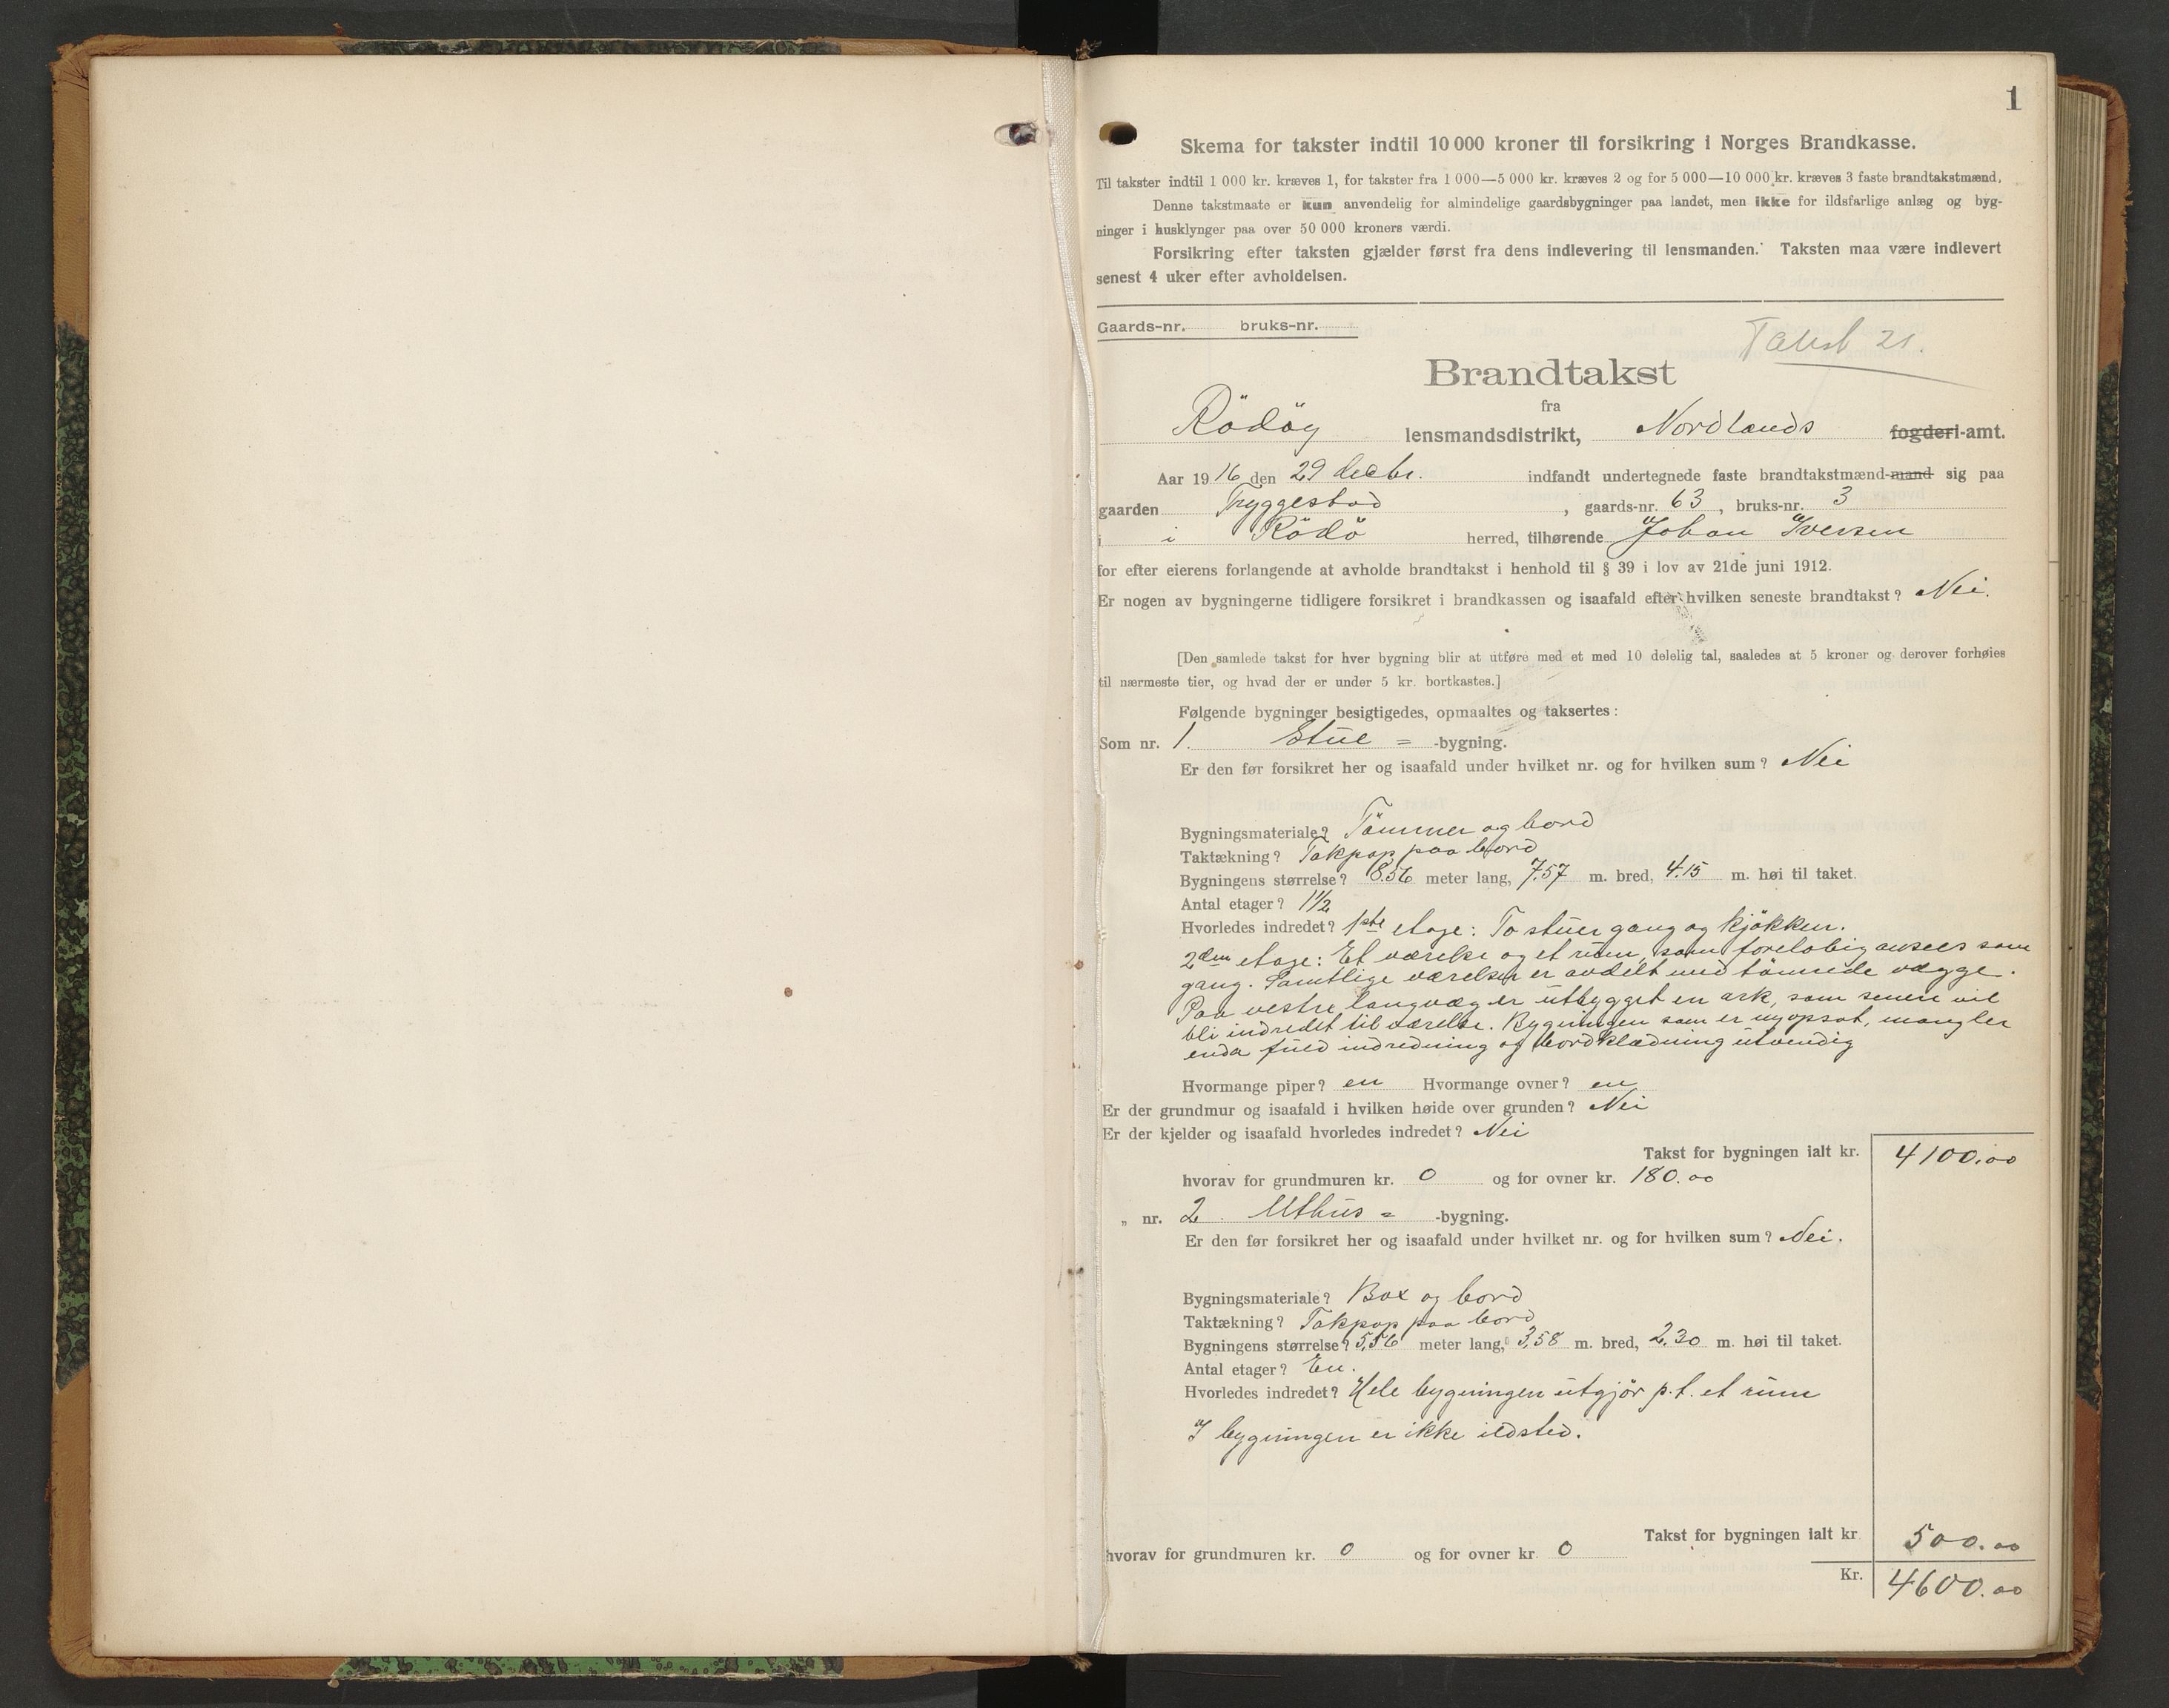 1
Skema for takster indtil 10 000 kroner til forsikring i Norges Brandkasse.
Til takster indtil 1 000 kr. kræves 1, for takster fra 1 000—5 000 kr. kræves 2 og for 5 000—10 000 kr. kræves 3 faste brandtakstmænd.
Denne takstmaate er kun anvendelig for almindelige gaardsbygninger paa landet, men ikke for ildsfarlige anlæg og byg-
ninger i husklynger paa over 50 000 kroners værdi.
Forsikring efter taksten gjælder først fra dens indlevering til lensmanden. Taksten maa være indlevert
senest 4 uker efter avholdelsen.
Gaards-nr. bruks-nr.
Takst 21.
Brandtakst
fra
Rödöy lensmandsdistrikt, Nordlands fogderi-amt.
Aar 1916 den 29 decbr. indfandt undertegnede faste brandtakstmænd-mand sig paa
gaarden Tryggestad, gaards-nr. 63, bruks-nr. 3
i i Rödö herred, tilhørende Johan Iversen
for efter eierens forlangende at avholde brandtakst i henhold til § 39 i lov av 21de juni 1912.
Er nogen av bygningerne tidligere forsikret i brandkassen og isaafald efter hvilken seneste brandtakst? Nei.
[Den samlede takst for hver bygning blir at utføre med et med 10 delelig tal, saaledes at 5 kroner og derover forhøies
til nærmeste tier, og hvad der er under 5 kr. bortkastes.]
Følgende bygninger besigtigedes, opmaaltes og taksertes:
Som nr. 1. Stue = -bygning.
Er den før forsikret her og isaafald under hvilket nr. og for hvilken sum? Nei
Bygningsmateriale? Tömmer og bord
Taktækning? Takpap paa bord
Bygningens størrelse? 8.56 meter lang, 7.57 m. bred, 4.15 m. høi til taket.
Antal etager? 1 1/2
Hvorledes indredet? 1ste etage: To stuer gang og kjökken.
2den etage: Et værelse og et rum, som foreløbig ansees som
gang. Samtlige værelser er avdelt med tömrede vægge.
Paa vestre langvæg er utbygget en ark, som senere vil
bli indredet til værelse. Bygningen som er nyopsat, mangler
enda fuld indredning og bordklædning utvendig
Hvormange piper? en Hvormange ovner? en
Er der grundmur og isaafald i hvilken høide over grunden? Nei
Er der kjelder og isaafald hvorledes indredet? Nei
Takst for bygningen ialt kr. 4100.00
hvorav for grundmuren kr. 0 og for ovner kr. 180.00
„ nr. 2. Uthus = -bygning.
Er den før forsikret her og isaafald under hvilket nr. og for hvilken sum? Nei.
Bygningsmateriale? Box og bord
Taktækning? Takpap paa bord
Bygningens størrelse? 5,56 meter lang, 3,58 m. bred, 2.30 m. høi til taket.
Antal etager? En.
Hvorledes indredet? Hele bygningen utgjör p.t. et rum
I bygningen er ikke ildsted.
Takst for bygningen ialt kr 500.00
hvorav for grundmuren kr. 0 og for ovner kr 0
Kr. 4600.00